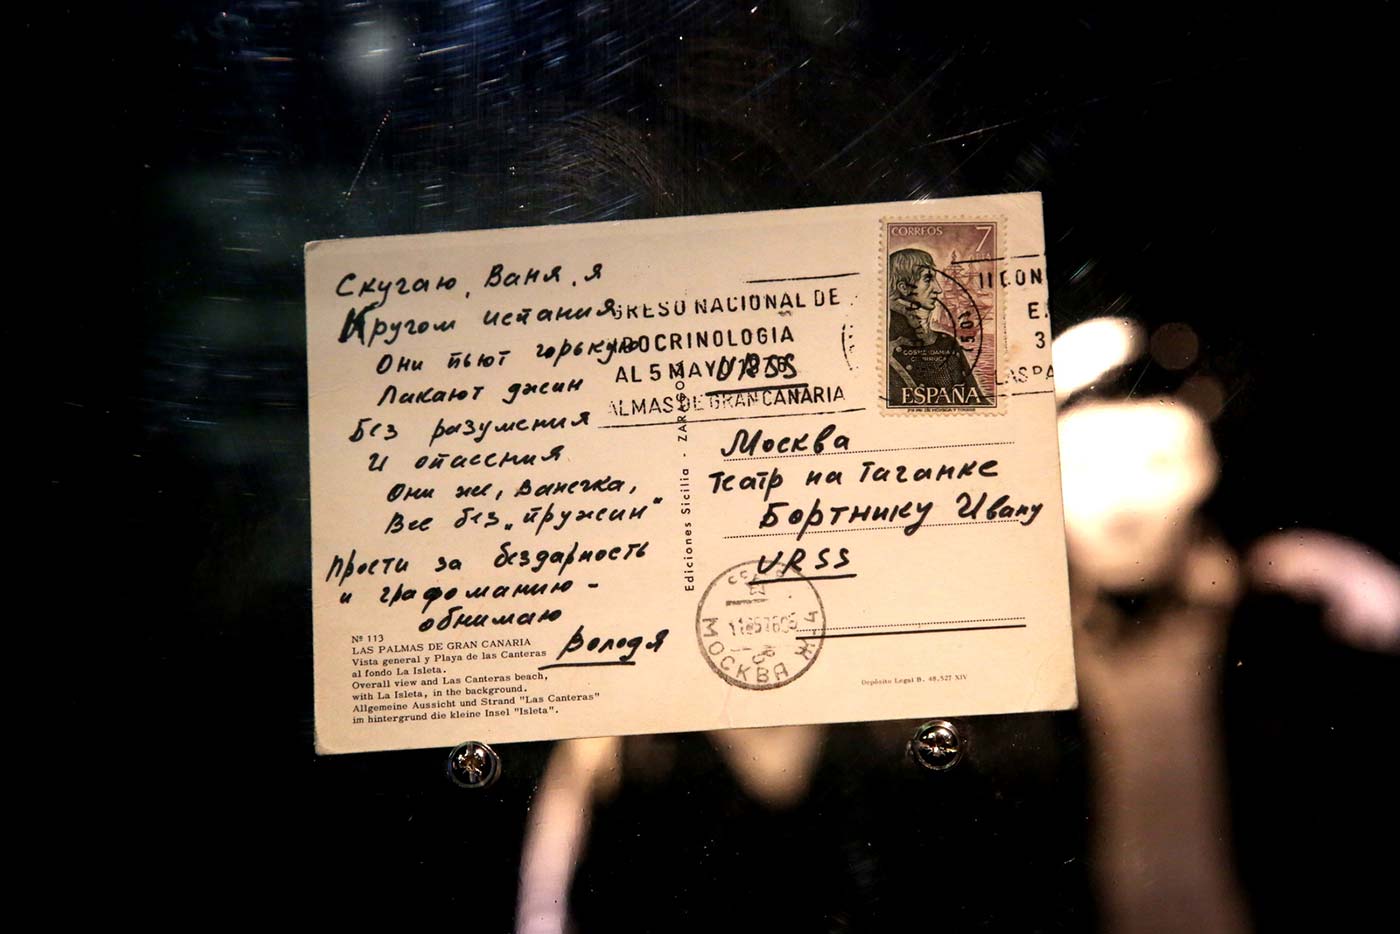 Скучаю, Ваня, я
Кругом испания
Они пьют горькую
Лакают джин
Без разумения
И опасения
Они же, Ванечка,
Все без „пружин“
Прости за бездарность
и графоманию –
обнимаю
Володя
Nº 113
LAS PALMAS DE GRAN CANARIA
Vista general y Playa de las Canteras
al fondo La Isleta.
Overall view and Las Canteras beach,
with La Isleta, in the background.
Allgemeine Aussicht und Strand "Las Canteras"
im hintergrund die kleine Insel "Isleta".
Ediciones Sicilia - ZARAGOZA
GRESO NACIONAL DE
DOCRINOLOGIA
AL 5 MAYO 1976
ALMAS DE GRAN CANARIA
URSS
CORREOS 7
COSME DAMIAN
CHURRUCA
ESPAÑA
II CON
E
3
LAS PA
Москва
Театр на Таганке
Бортнику Ивану
URSS
МОСКВА Ж-4
Depósito Legal B. 48.527 XIV